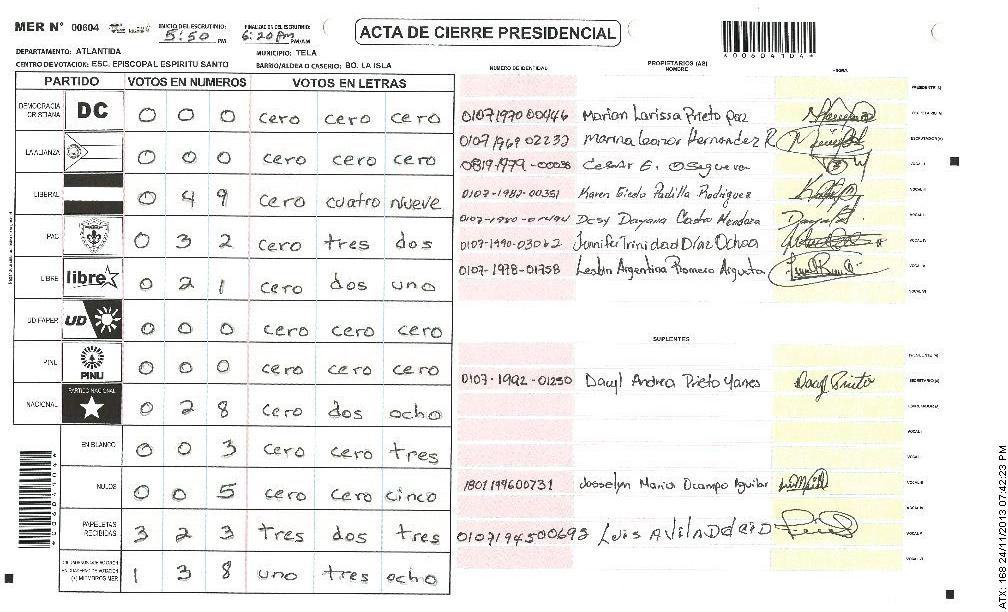 MER N° 00604 INICIO DEL ESCRUTINIO: 5:50 PM FINALIZACION DEL ESCRUTINIO: 6:20 pm PM/AM
ACTA DE CIERRE PRESIDENCIAL
*00604104*
DEPARTAMENTO: ATLANTIDA MUNICIPIO: TELA
CENTRO DE VOTACION: ESC. EPISCOPAL ESPIRITU SANTO BARRIO/ALDEA O CASERIO: BO. LA ISLA
PARTIDO VOTOS EN NUMEROS VOTOS EN LETRAS
DEMOCRACIA CRISTIANA DC 0 0 0 cero cero cero
LA ALIANZA 0 0 0 cero cero cero
LIBERAL 0 4 9 cero cuatro nueve
PAC 0 3 2 cero tres dos
LIBRE libre 0 2 1 cero dos uno
UD/FAPER UD 0 0 0 cero cero cero
PINU PINU 0 0 0 cero cero cero
NACIONAL PARTIDO NACIONAL 0 2 8 cero dos ocho
EN BLANCO 0 0 3 cero cero tres
NULOS 0 0 5 cero cero cinco
PAPELETAS RECIBIDAS 3 2 3 tres dos tres
1 3 8 uno tres ocho
NUMERO DE IDENTIDAD PROPIETARIOS (AS) NOMBRE FIRMA
PRESIDENTE (A)
0107197000446 Marian Larissa Prieto Paz SECRETARIO (A)
0107196902232 Marina Leonor Hernandez R ESCRUTADOR (A)
0819-1979-00038 Cesar E. Oseguera VOCAL I
0107-1982-00351 Karen Gisela Padilla Rodriguez VOCAL II
Desy Dayana Castro Mendoza
0107-1990-03062 Jennifer Trinidad Díaz Ochoa VOCAL IV
0107-1978-01758 Lesbin Argentina Romero Argueta VOCAL V
VOCAL VI
SUPLENTES
PRESIDENTE (A)
0107-1992-01250 Daryl Andrea Prieto Yanes Daryl Prieto SECRETARIO (A)
ESCRUTADOR (A)
VOCAL I
VOCAL II
1801199600731 Josselyn Maria Ocampo Aguilar VOCAL III
VOCAL IV
0107194500692 Luis Avila Del Cid VOCAL V
VOCAL VI
ATX: 168 24/11/2013 07:42:23 PM